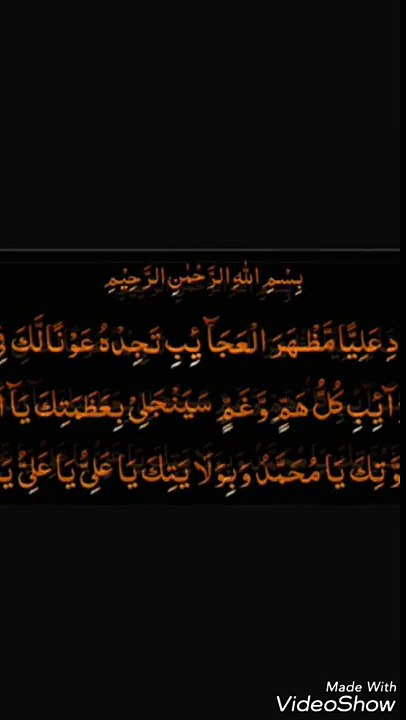 بِسْمِ اللهِ الرَّحْمٰنِ الرَّحِيْمِ
دِ عَلِيًّا مَّظْهَرَ الْعَجَآئِبِ تَجِدْهُ عَوْنًا لَّكَ فِ
آئِبِ كُلُّ هَمٍّ وَّغَمٍّ سَيَنْجَلِيْ بِعَظَمَتِكَ يَآ
وَّتِكَ يَا مُحَمَّدُ وَبِوَلَايَتِكَ يَا عَلِيُّ يَا عَلِيُّ يَا
Made With
VideoShow